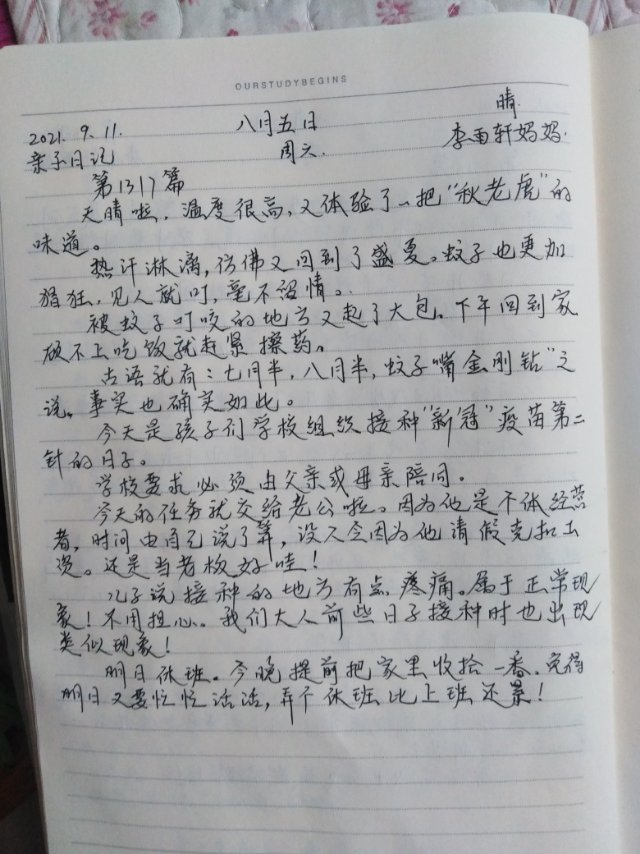 OURSTUDYBEGINS
2021.9.11. 八月五日 晴
亲子日记 周六. 李雨轩妈妈.
第1317篇
天晴啦,温度很高,又体验了一把“秋老虎”的
味道。
热汗淋漓,仿佛又回到了盛夏。蚊子也更加
猖狂,见人就叮,毫不留情。
被蚊子叮咬的地方又起了大包。下午回到家
顾不上吃饭就赶紧擦药。
古语就有:七月半,八月半,蚊子嘴金刚钻”之
说。事实也确实如此。
今天是孩子们学校组织接种“新冠”疫苗第二
针的日子。
学校要求必须由父亲或母亲陪同。
今天的任务就交给老公啦。因为他是个体经营
者,时间由自己说了算,没人会因为他请假克扣工
资。还是当老板好哇!
儿子说接种的地方有点疼痛。属于正常现
象!不用担心。我们大人前些日子接种时也出现
类似现象!
明日休班。今晚提前把家里收拾一番。免得
明日又要忙忙活活,弄个休班比上班还累!